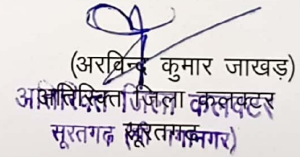 (अरविन्द कुमार जाखड़)
अतिरिक्त जिला कलक्टर
सूरतगढ़
अतिरिक्त जिला कलक्टर
सूरतगढ़ (श्रीगंगानगर)